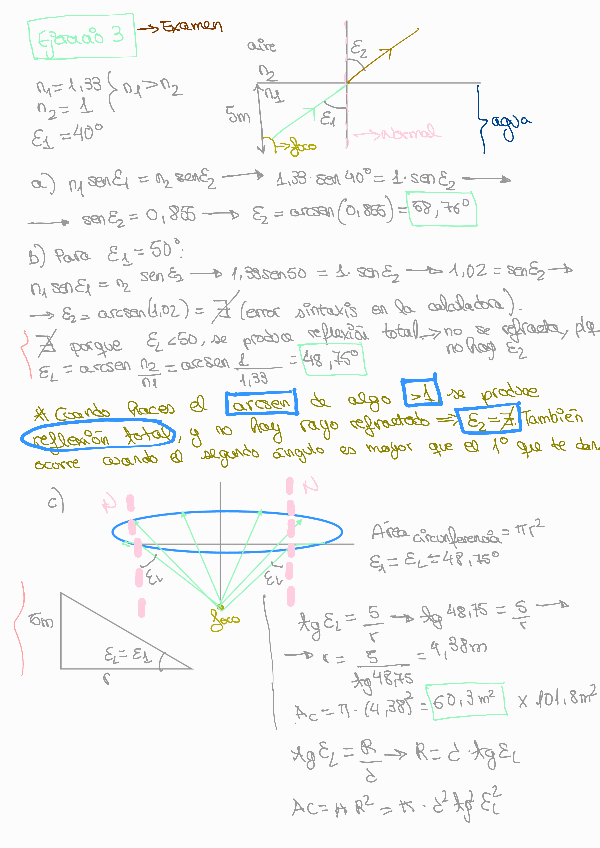 Ejercicio 3 → Examen
n₁ = 1,33 } n₁ > n₂
n₂ = 1
ε₁ = 40°
aire
n₂
n₁
5m
ε₂
ε₁
foco
Normal
agua
a) n₁ sen ε₁ = n₂ sen ε₂ → 1,33 · sen 40° = 1 · sen ε₂ →
→ sen ε₂ = 0,855 → ε₂ = arcsen (0,855) = 58,76°
b) Para ε₁ = 50°:
n₁ sen ε₁ = n₂ sen ε₂ → 1,33 sen 50 = 1 · sen ε₂ → 1,02 = sen ε₂ →
→ ε₂ = arcsen (1,02) = ∄ (error sintaxis en la calculadora).
∄ porque ε_L < 50, se produce reflexión total → no se refracta, no hay ε₂
ε_L = arcsen n₂/n₁ = arcsen 1/1,33 = 48,75°
* Cuando haces el arcsen de algo > 1 se produce
reflexión total, y no hay rayo refractado ⇒ ε₂ = ∄. También
ocurre cuando el segundo ángulo es mayor que el 1º que te dan.
c)
N
N
ε_L
ε_L
foco
Área circunferencia = πr²
ε₁ = ε_L = 48,75°
5m
ε_L = ε₁
r
tg ε_L = 5/r → tg 48,75 = 5/r →
→ r = 5/tg 48,75 = 4,38 m
Ac = π · (4,38)² = 60,3 m² × 101,8 m²
tg ε_L = R/d → R = d · tg ε_L
Ac = π R² = π · d² tg² ε_L²